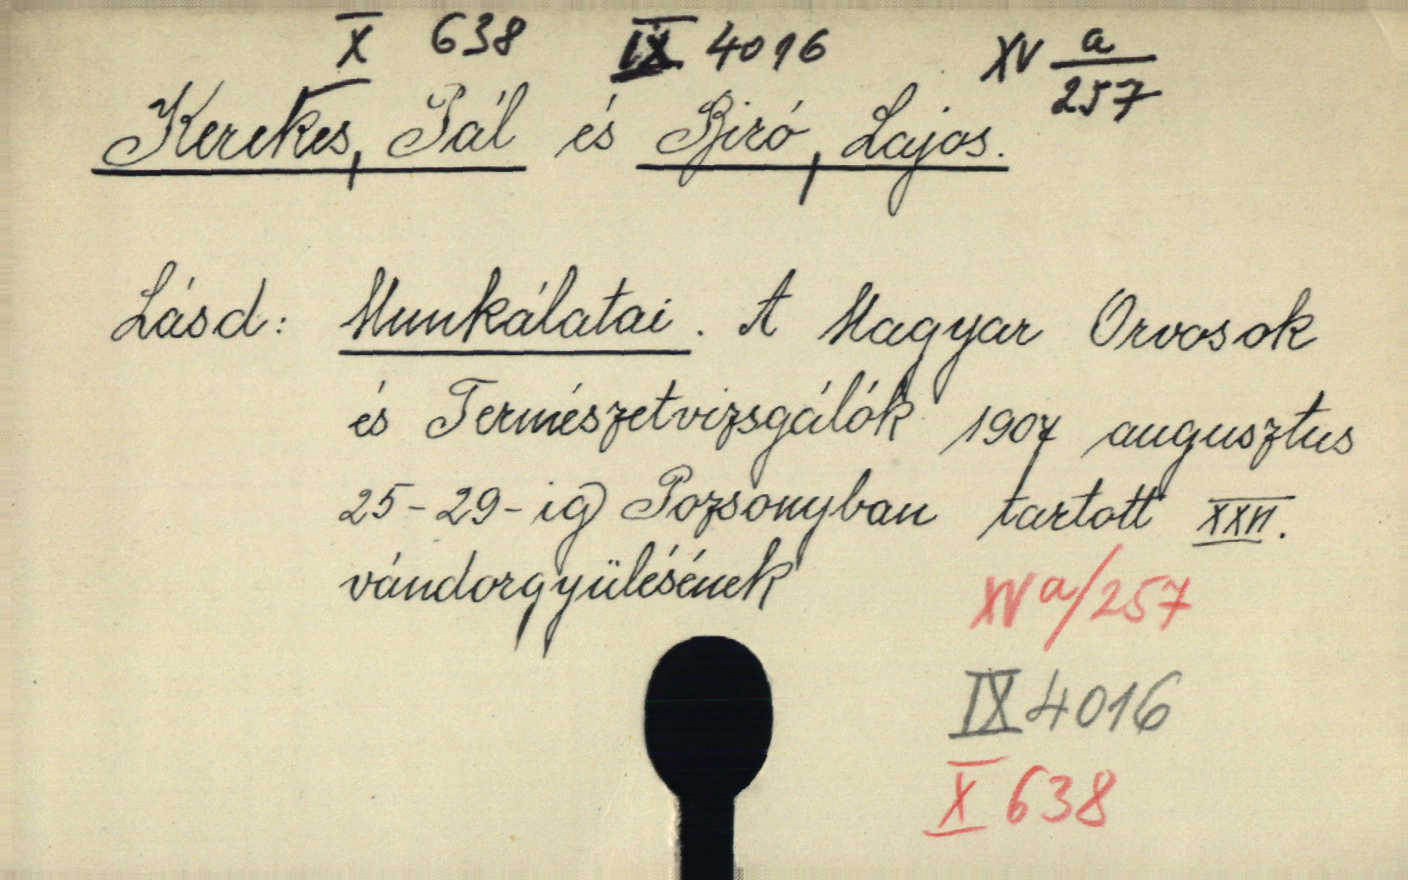 X 638 IX 4016 XV a/257
Kerekes, Pál és Biró, Lajos.
Lásd: Munkálatai. A Magyar Orvosok
és Természetvizsgálók 1907 augusztus
25-29-ig Pozsonyban tartott
vándorgyülésének
XV a/257
IX 4016
X 638